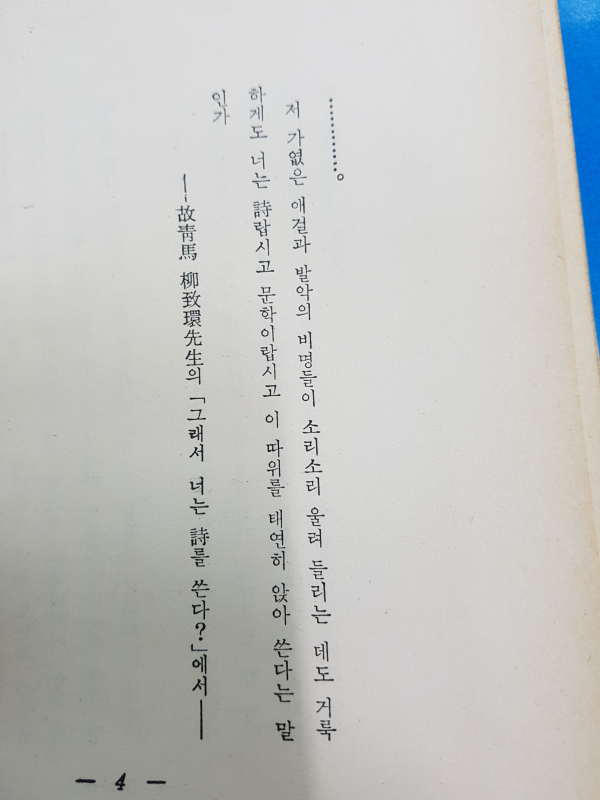 …………。
저 가엾은 애걸과 발악의 비명들이 소리소리 울려 들리는 데도 거룩
하게도 너는 詩랍시고 문학이랍시고 이 따위를 태연히 앉아 쓴다는 말
인가
──故靑馬 柳致環先生의 「그래서 너는 詩를 쓴다?」에서──
— 4 —